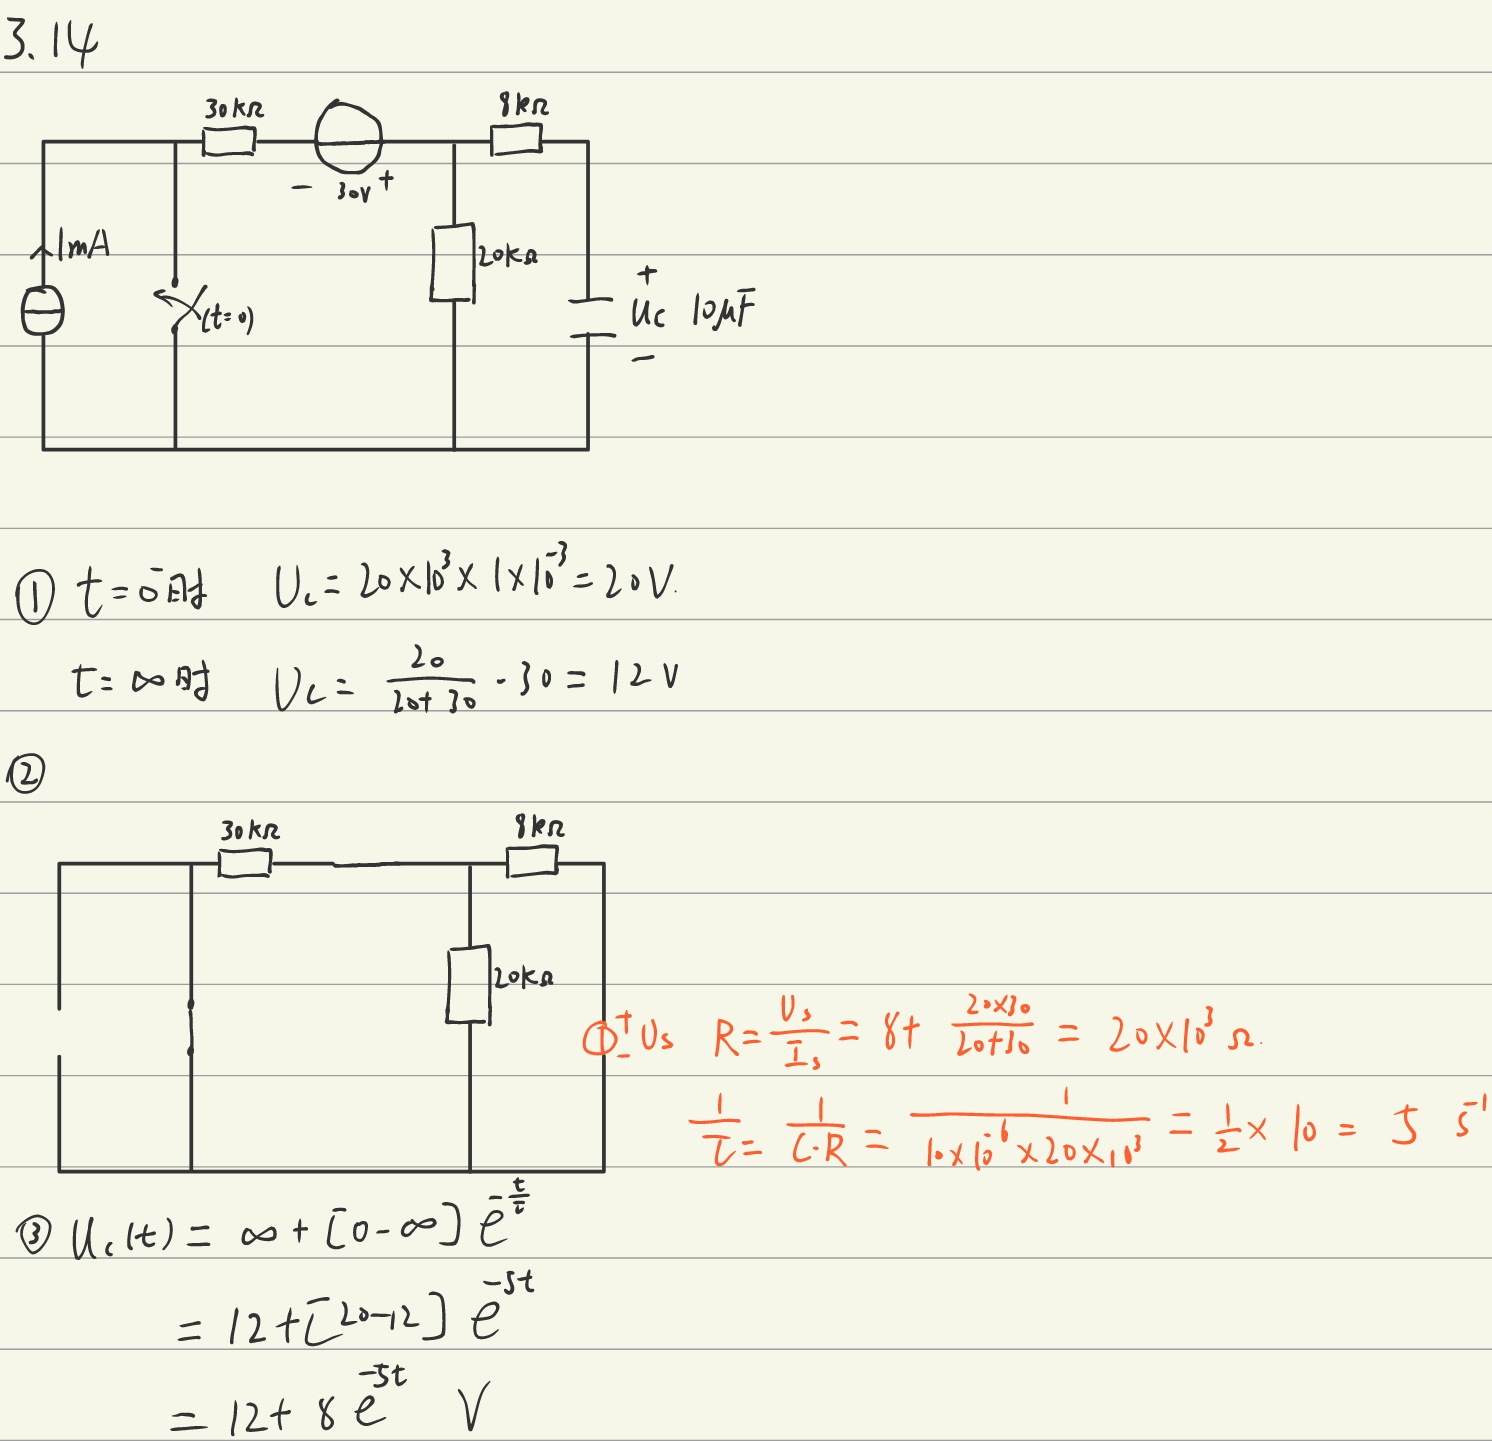 3.14
30kΩ
8kΩ
- 30V +
1mA
20kΩ
(t=0)
+
Uc 10μF
-
① t=0⁻时 Uc=20×10³×1×10⁻³=20V.
t=∞时 Uc= 20/(20+30) ·30 = 12V
②
30kΩ
8kΩ
20kΩ
+ Us - R= Us/Is = 8+ (20×30)/(20+30) = 20×10³ Ω.
1/τ = 1/(C·R) = 1/(10×10⁻⁶×20×10³) = 1/2 × 10 = 5 s⁻¹
③ Uc(t) = ∞+[0-∞] e^(-t/τ)
= 12+[20-12] e^(-5t)
= 12+ 8e^(-5t) V